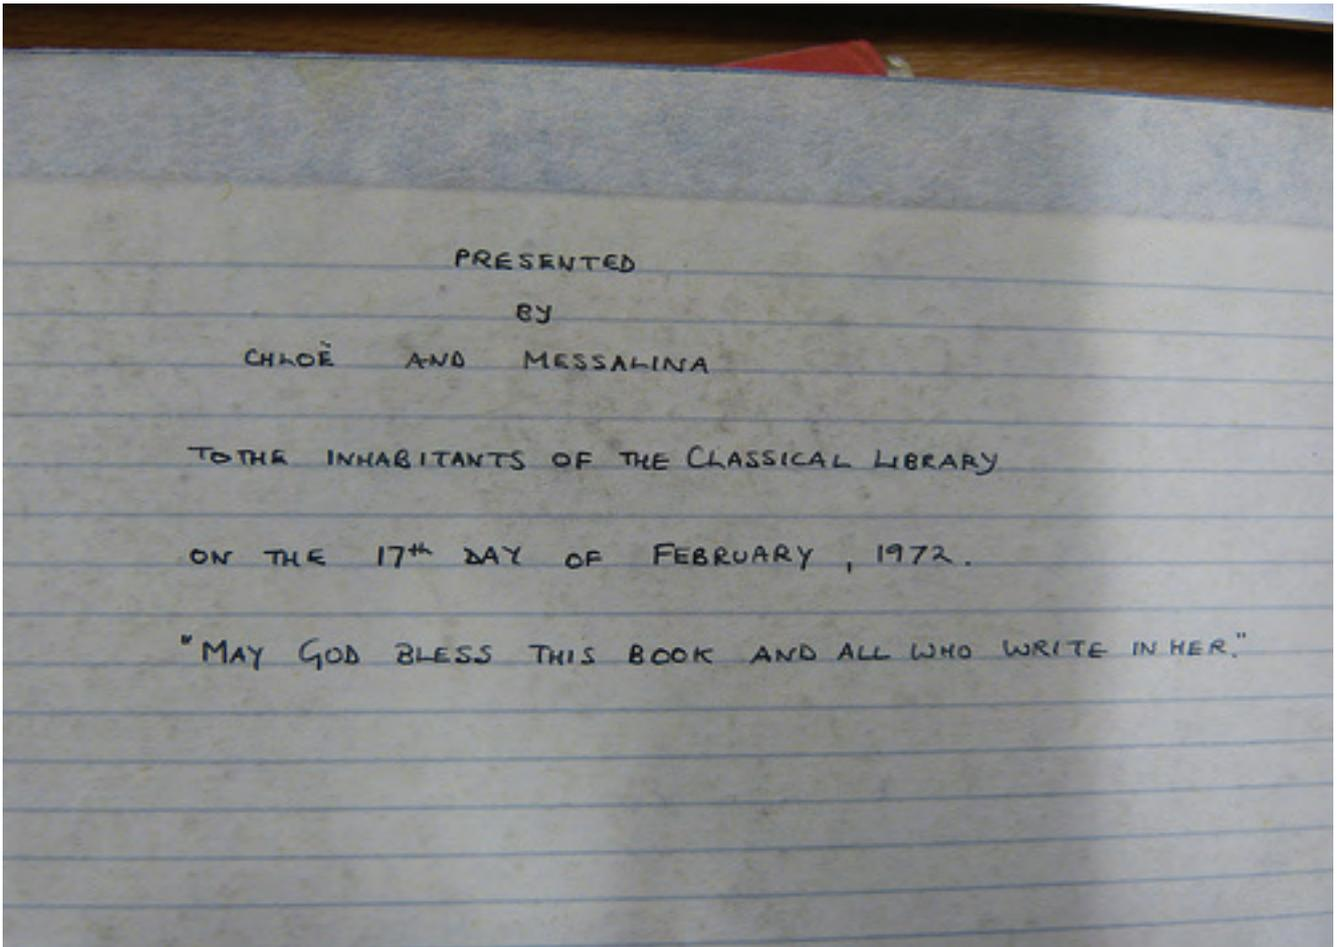 PRESENTED
BY
CHLOË AND MESSALINA
TO THE INHABITANTS OF THE CLASSICAL LIBRARY
ON THE 17th DAY OF FEBRUARY, 1972.
"MAY GOD BLESS THIS BOOK AND ALL WHO WRITE IN HER."